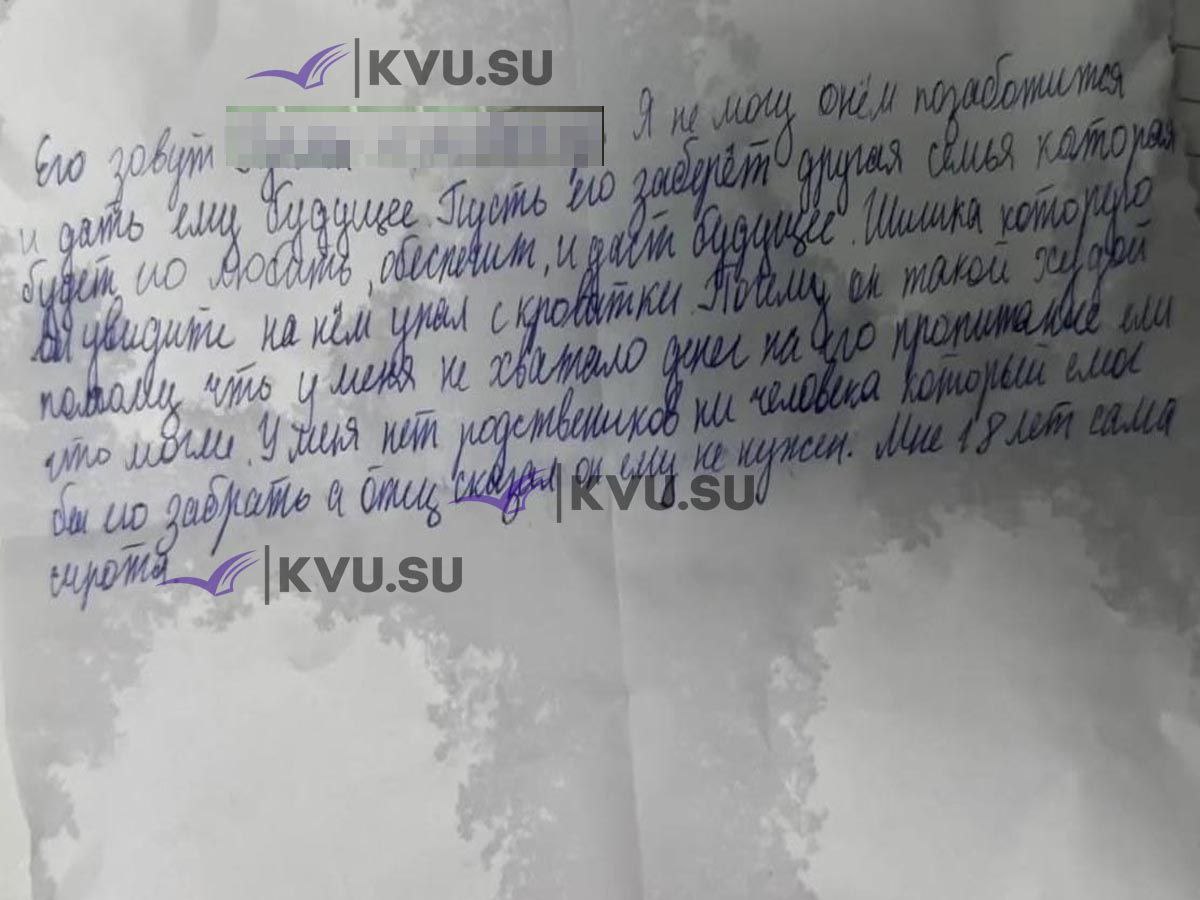 KVU.SU
Его зовут Я не могу онём позаботится
и дать ему будущее. Пусть его заберёт другая семья каторая
будет его любать, обеспечит, и даст будущее. Шишка которую
вы увидите на нём упал с кроватки. Почему он такой худой
потому что у меня не хватало денег на его пропитание ели
что могли. У меня нет родствеников ни человека который смог
бы его забрать а отец сказал он ему не нужен. Мне 18 лет сама
KVU.SU
сирота
KVU.SU